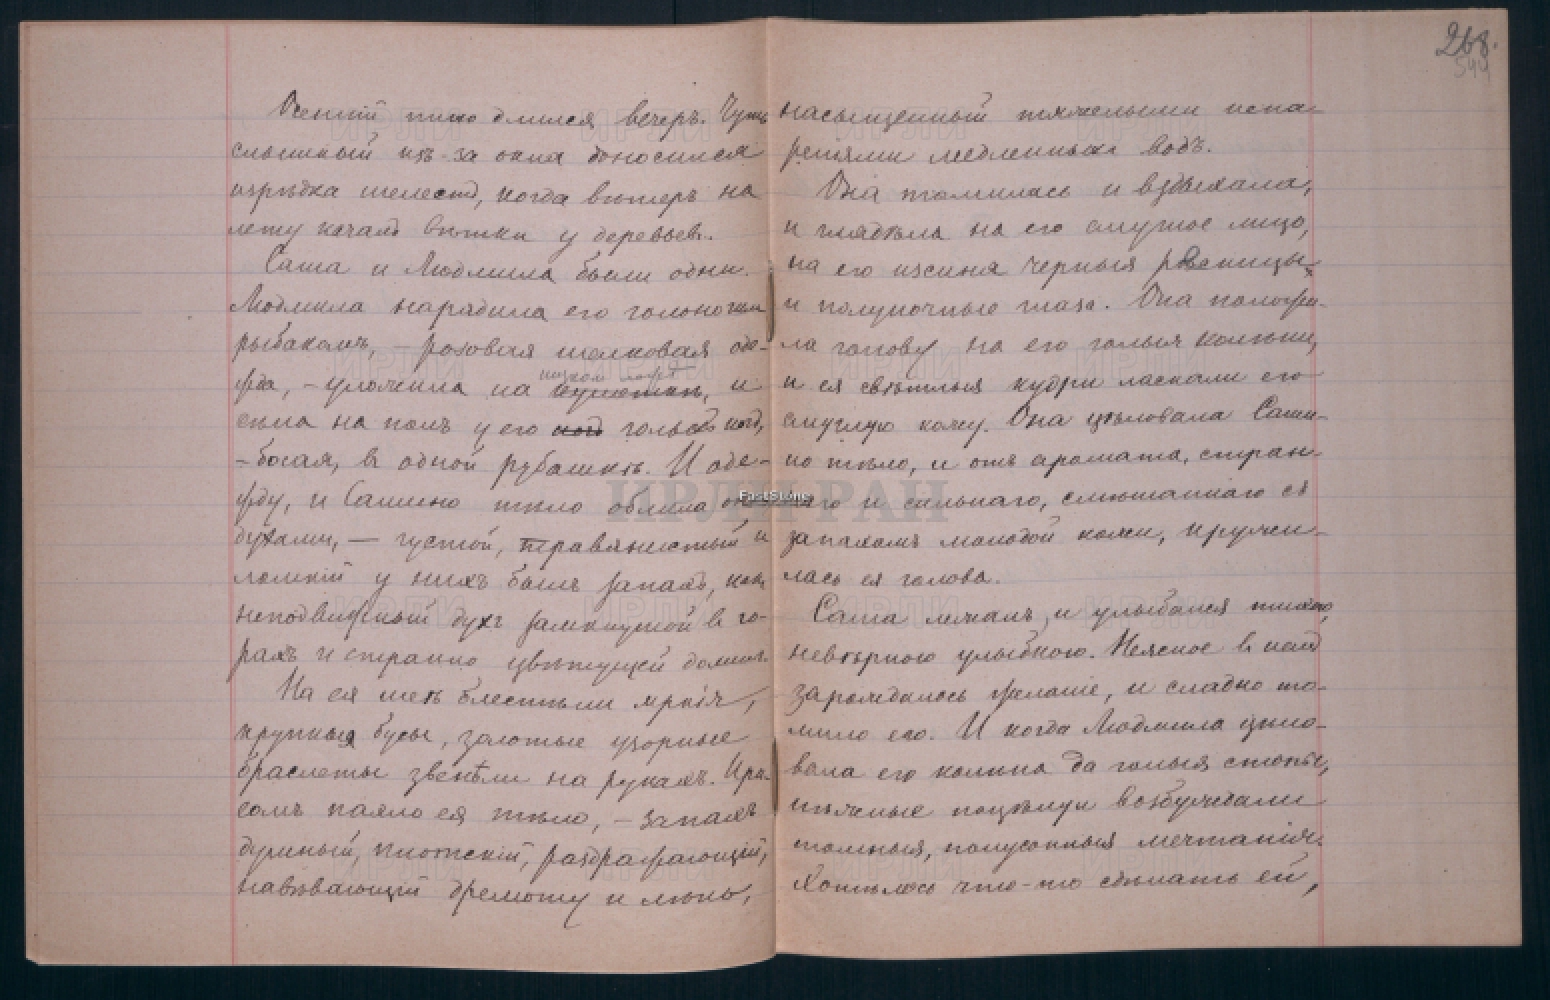 268.
544
Осенній тихо длился вечеръ. Чуть
слышный изъ-за окна доносился
изрѣдка шелестъ, когда вѣтеръ на
лету качалъ вѣтки у деревьевъ.
Саша и Людмила были одни.
Людмила нарядила его голоногимъ
рыбакомъ, – розовая шелковая оде-
жда, – уложила на низкомъ ложѣ, и
сѣла на полъ у его ногъ голыхъ ногъ,
– босая, въ одной рубашкѣ. И оде-
жду, и Сашино тѣло облила она
духами, — густой, травянистый и
ломкій у нихъ былъ запахъ, какъ
неподвижный духъ замкнутой въ го-
рахъ и странно цвѣтущей долины.
На ея шеѣ блестѣли яркія,
крупныя бусы, золотые узорные
браслеты звенѣли на рукахъ. Ири-
сомъ пахло ея тѣло, – запахъ
душный, плотскій, раздражающій,
навѣвающій дремоту и лѣнь,
насыщенный тяжелыми испа-
реніями медленныхъ водъ.
Она томилась и вздыхала,
и глядѣла на его смуглое лицо,
на его изсиня черныя рѣсницы
и полуночные глаза. Она положи-
ла голову на его голыя колѣни,
и ея свѣтлыя кудри ласкали его
смуглую кожу. Она цѣловала Саши-
но тѣло, и отъ аромата, стран-
наго и сильнаго, смѣшаннаго съ
запахомъ молодой кожи, кружи-
лась ея голова.
Саша лежалъ, и улыбался тихою,
невѣрною улыбкою. Неясное въ немъ
зарождалось желаніе, и сладко то-
мило его. И когда Людмила цѣло-
вала его колѣна да голыя стопы,
нѣжные поцѣлуи возбуждали
томныя, полусонныя мечтанія.
Хотѣлось что-то сдѣлать ей,
ИРЛИ РАН
FastStone